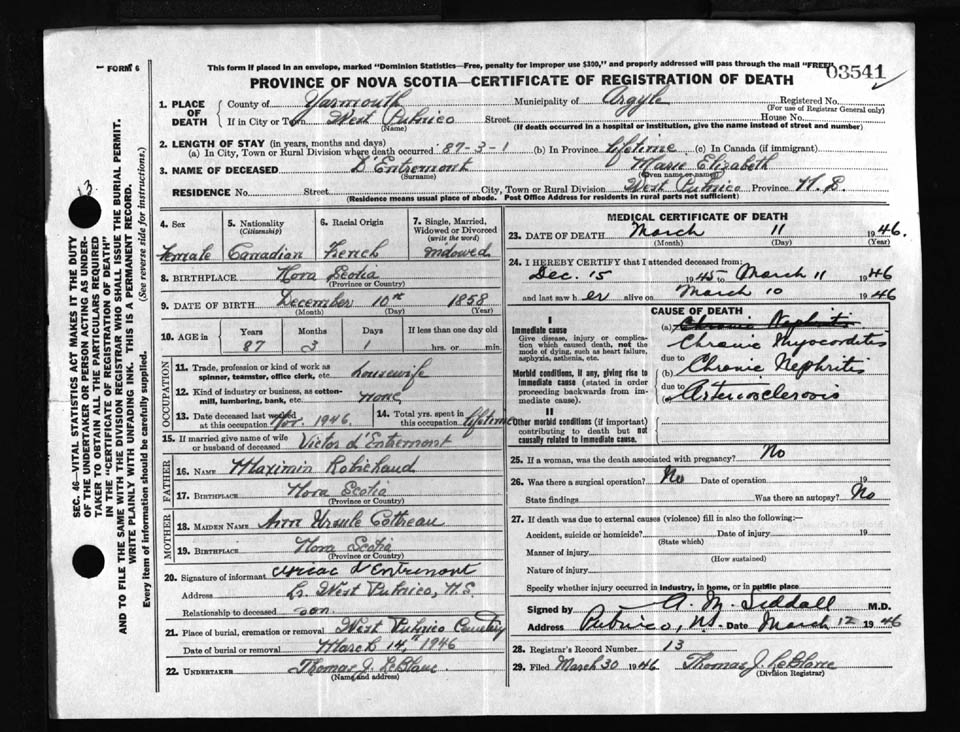 FORM 6
This form if placed in an envelope, marked "Dominion Statistics—Free, penalty for improper use $300," and properly addressed will pass through the mail "FREE".
03541
PROVINCE OF NOVA SCOTIA—CERTIFICATE OF REGISTRATION OF DEATH
1. PLACE OF DEATH
County of Yarmouth Municipality of Argyle Registered No.
(For use of Registrar General only)
If in City or Town West Pubnico Street House No.
(Name) (If death occurred in a hospital or institution, give the name instead of street and number)
2. LENGTH OF STAY (in years, months and days)
(a) In City, Town or Rural Division where death occurred 87-3-1 (b) In Province lifetime (c) In Canada (if immigrant)
3. NAME OF DECEASED D'Entremont Marie Elizabeth
(Surname) (Given name or names)
RESIDENCE No. Street City, Town or Rural Division West Pubnico Province N.S.
(Residence means usual place of abode. Post Office Address for residents in rural parts not sufficient)
4. Sex
Female
5. Nationality
(Citizenship)
Canadian
6. Racial Origin
French
7. Single, Married, Widowed or Divorced
(write the word)
Widowed
8. BIRTHPLACE Nova Scotia
(Province or Country)
9. DATE OF BIRTH December 10th 1858
(Month) (Day) (Year)
10. AGE in
Years Months Days If less than one day old
87 3 1 hrs. or min.
OCCUPATION
11. Trade, profession or kind of work as
spinner, teamster, office clerk, etc. housewife
12. Kind of industry or business, as cotton-
mill, lumbering, bank, etc. none
13. Date deceased last worked
at this occupation Nov. 1946.
14. Total yrs. spent in
this occupation lifetime
15. If married give name of wife
or husband of deceased Victor d'Entremont
FATHER
16. NAME Maximin Robichaud
17. BIRTHPLACE Nova Scotia
(Province or Country)
MOTHER
18. MAIDEN NAME Ann Ursule Cottreau
19. BIRTHPLACE Nova Scotia
(Province or Country)
20. Signature of informant d'Entremont
Address Lr. West Pubnico, N.S.
Relationship to deceased son.
21. Place of burial, cremation or removal West Pubnico Cemetery
Date of burial or removal March 14, 1946
22. UNDERTAKER Thomas J. LeBlanc
(Name and address)
MEDICAL CERTIFICATE OF DEATH
23. DATE OF DEATH March 11 1946.
(Month) (Day) (Year)
24. I HEREBY CERTIFY that I attended deceased from:
Dec. 15 1945 to March 11 1946
and last saw her alive on March 10 1946
CAUSE OF DEATH
I
Immediate cause
Give disease, injury or complica-
tion which caused death, not the
mode of dying, such as heart failure,
asphyxia, asthenia, etc.
(a) Chronic Nephritis
Chronic Myocarditis
due to
Morbid conditions, if any, giving rise to
immediate cause (stated in order
proceeding backwards from im-
mediate cause).
(b) Chronic Nephritis
due to
Arteriosclerosis
II
Other morbid conditions (if important)
contributing to death but not
causally related to immediate cause.
25. If a woman, was the death associated with pregnancy? No
26. Was there a surgical operation? No Date of operation 19
State findings Was there an autopsy? No
27. If death was due to external causes (violence) fill in also the following:—
Accident, suicide or homicide? Date of injury 19
(State which)
Manner of injury
(How sustained)
Nature of injury
Specify whether injury occurred in industry, in home, or in public place
Signed by A. M. Siddall M.D.
Address Pubnico, N.S. Date March 12 1946
28. Registrar's Record Number 13
29. Filed March 30 1946 Thomas J. LeBlanc
(Division Registrar)
13.
SEC. 46—VITAL STATISTICS ACT MAKES IT THE DUTY
OF THE UNDERTAKER OR PERSON ACTING AS UNDER-
TAKER TO OBTAIN ALL THE PARTICULARS REQUIRED
IN THE "CERTIFICATE OF REGISTRATION OF DEATH"
AND TO FILE THE SAME WITH THE DIVISION REGISTRAR WHO SHALL ISSUE THE BURIAL PERMIT.
WRITE PLAINLY WITH UNFADING INK. THIS IS A PERMANENT RECORD.
Every item of information should be carefully supplied. (See reverse side for instructions.)